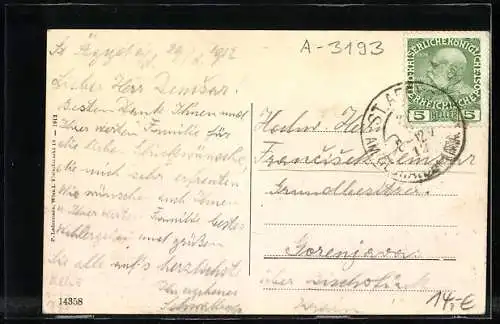 A-3193
St. Aegyd 29/ 1912
Lieber Herr Demšar.
Besten Dank Ihnen und
Ihrer werten Familie für
die lieben Glückwünsche,
die mich sehr erfreuten
Wir wünschen auch Ihnen
u Ihrer werten Familie bestes
Wohlergehen und grüßen
Sie alle auf's herzlichste
KAISERLICHE KÖNIGLICHE
ÖSTERREICHISCHE
5 HELLER 5
ST. AE
Hochw. Herr
Francišek Demšar
Grundbesitzer
Gorenjavas
über Bischoflack
Krain
14,-€
P. Ledermann, Wien I. Fleischmarkt 12 — 1912
14358